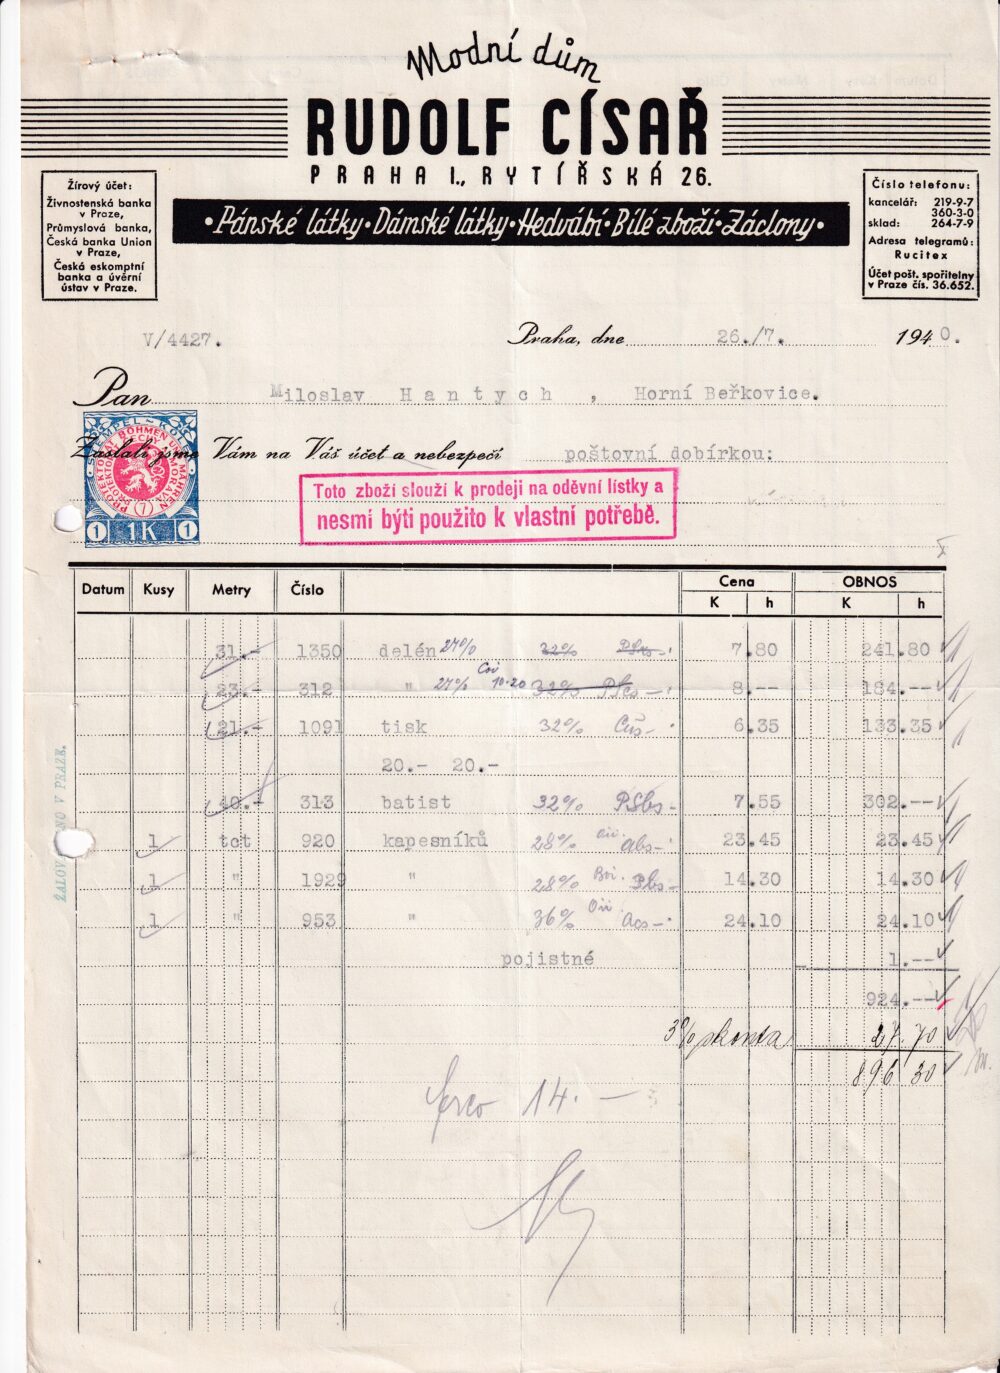 Modní dům
RUDOLF CÍSAŘ
PRAHA I., RYTÍŘSKÁ 26.
• Pánské látky • Dámské látky • Hedvábí • Bílé zboží • Záclony •
Žírový účet:
Živnostenská banka
v Praze,
Průmyslová banka,
Česká banka Union
v Praze,
Česká eskomptní
banka a úvěrní
ústav v Praze.
Číslo telefonu:
kancelář: 219-9-7
360-3-0
sklad: 264-7-9
Adresa telegramů:
Rucitex
Účet pošt. spořitelny
v Praze čís. 36.652.
V/4427. Praha, dne 26./7. 1940.
Pan Miloslav Hantych , Horní Beřkovice.
Zaslali jsme Vám na Váš účet a nebezpečí poštovní dobírkou:
1 1K 1
Toto zboží slouží k prodeji na oděvní lístky a
nesmí býti použito k vlastní potřebě.
Datum Kusy Metry Číslo Cena OBNOS
K h K h
31.- 1350 delén 27% 32% 7.80 241.80
23.- 312 " 27% 10.20 32% 8.-- 184.--
21.- 1091 tisk 32% 6.35 133.35
20.- 20.-
40.- 313 batist 32% 7.55 302.--
1 tct 920 kapesníků 28% 23.45 23.45
1 " 1929 " 28% 14.30 14.30
1 " 953 " 36% 24.10 24.10
pojistné 1.--
924.--
3% skonta 27.70
896 30
14.-